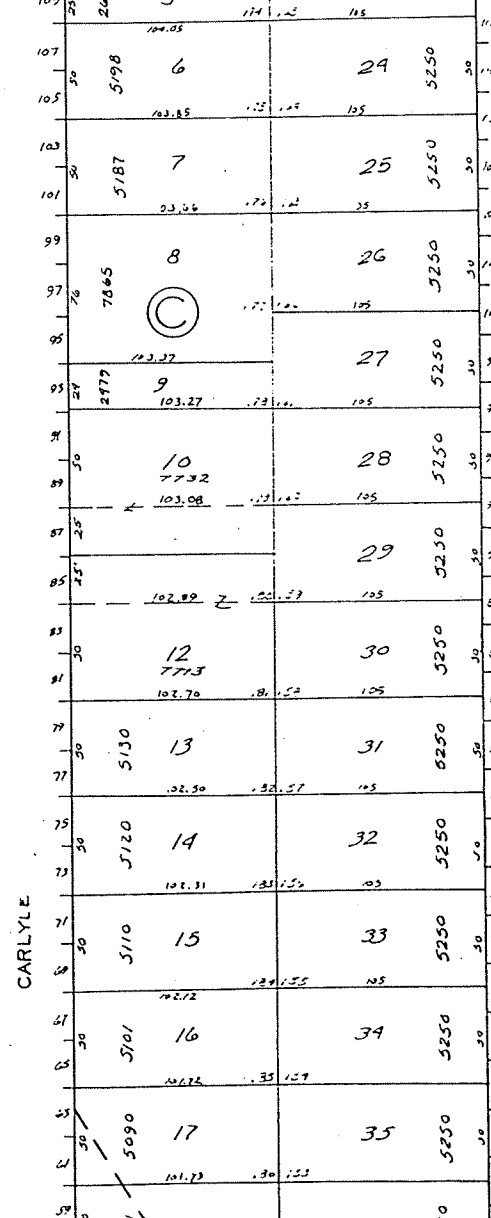 105
104.05
107
50
5198
6
24
5250
50
105
103.85
105
103
50
5187
7
25
5250
50
101
99
8
26
5250
50
97
76
7865
C
105
95
103.37
27
5250
50
93
24
2977
9
103.27
105
91
50
10
7732
28
5250
50
89
103.08
105
87
25'
29
5250
50
85
25'
102.89
105
83
50
12
7713
30
5250
50
81
102.70
105
79
50
5130
13
31
5250
50
77
105
75
50
5120
14
32
5250
50
73
102.31
105
71
50
5110
15
33
5250
50
69
102.12
105
CARLYLE
67
50
5101
16
34
5250
50
65
63
50
5090
17
35
5250
50
61
101.73
59